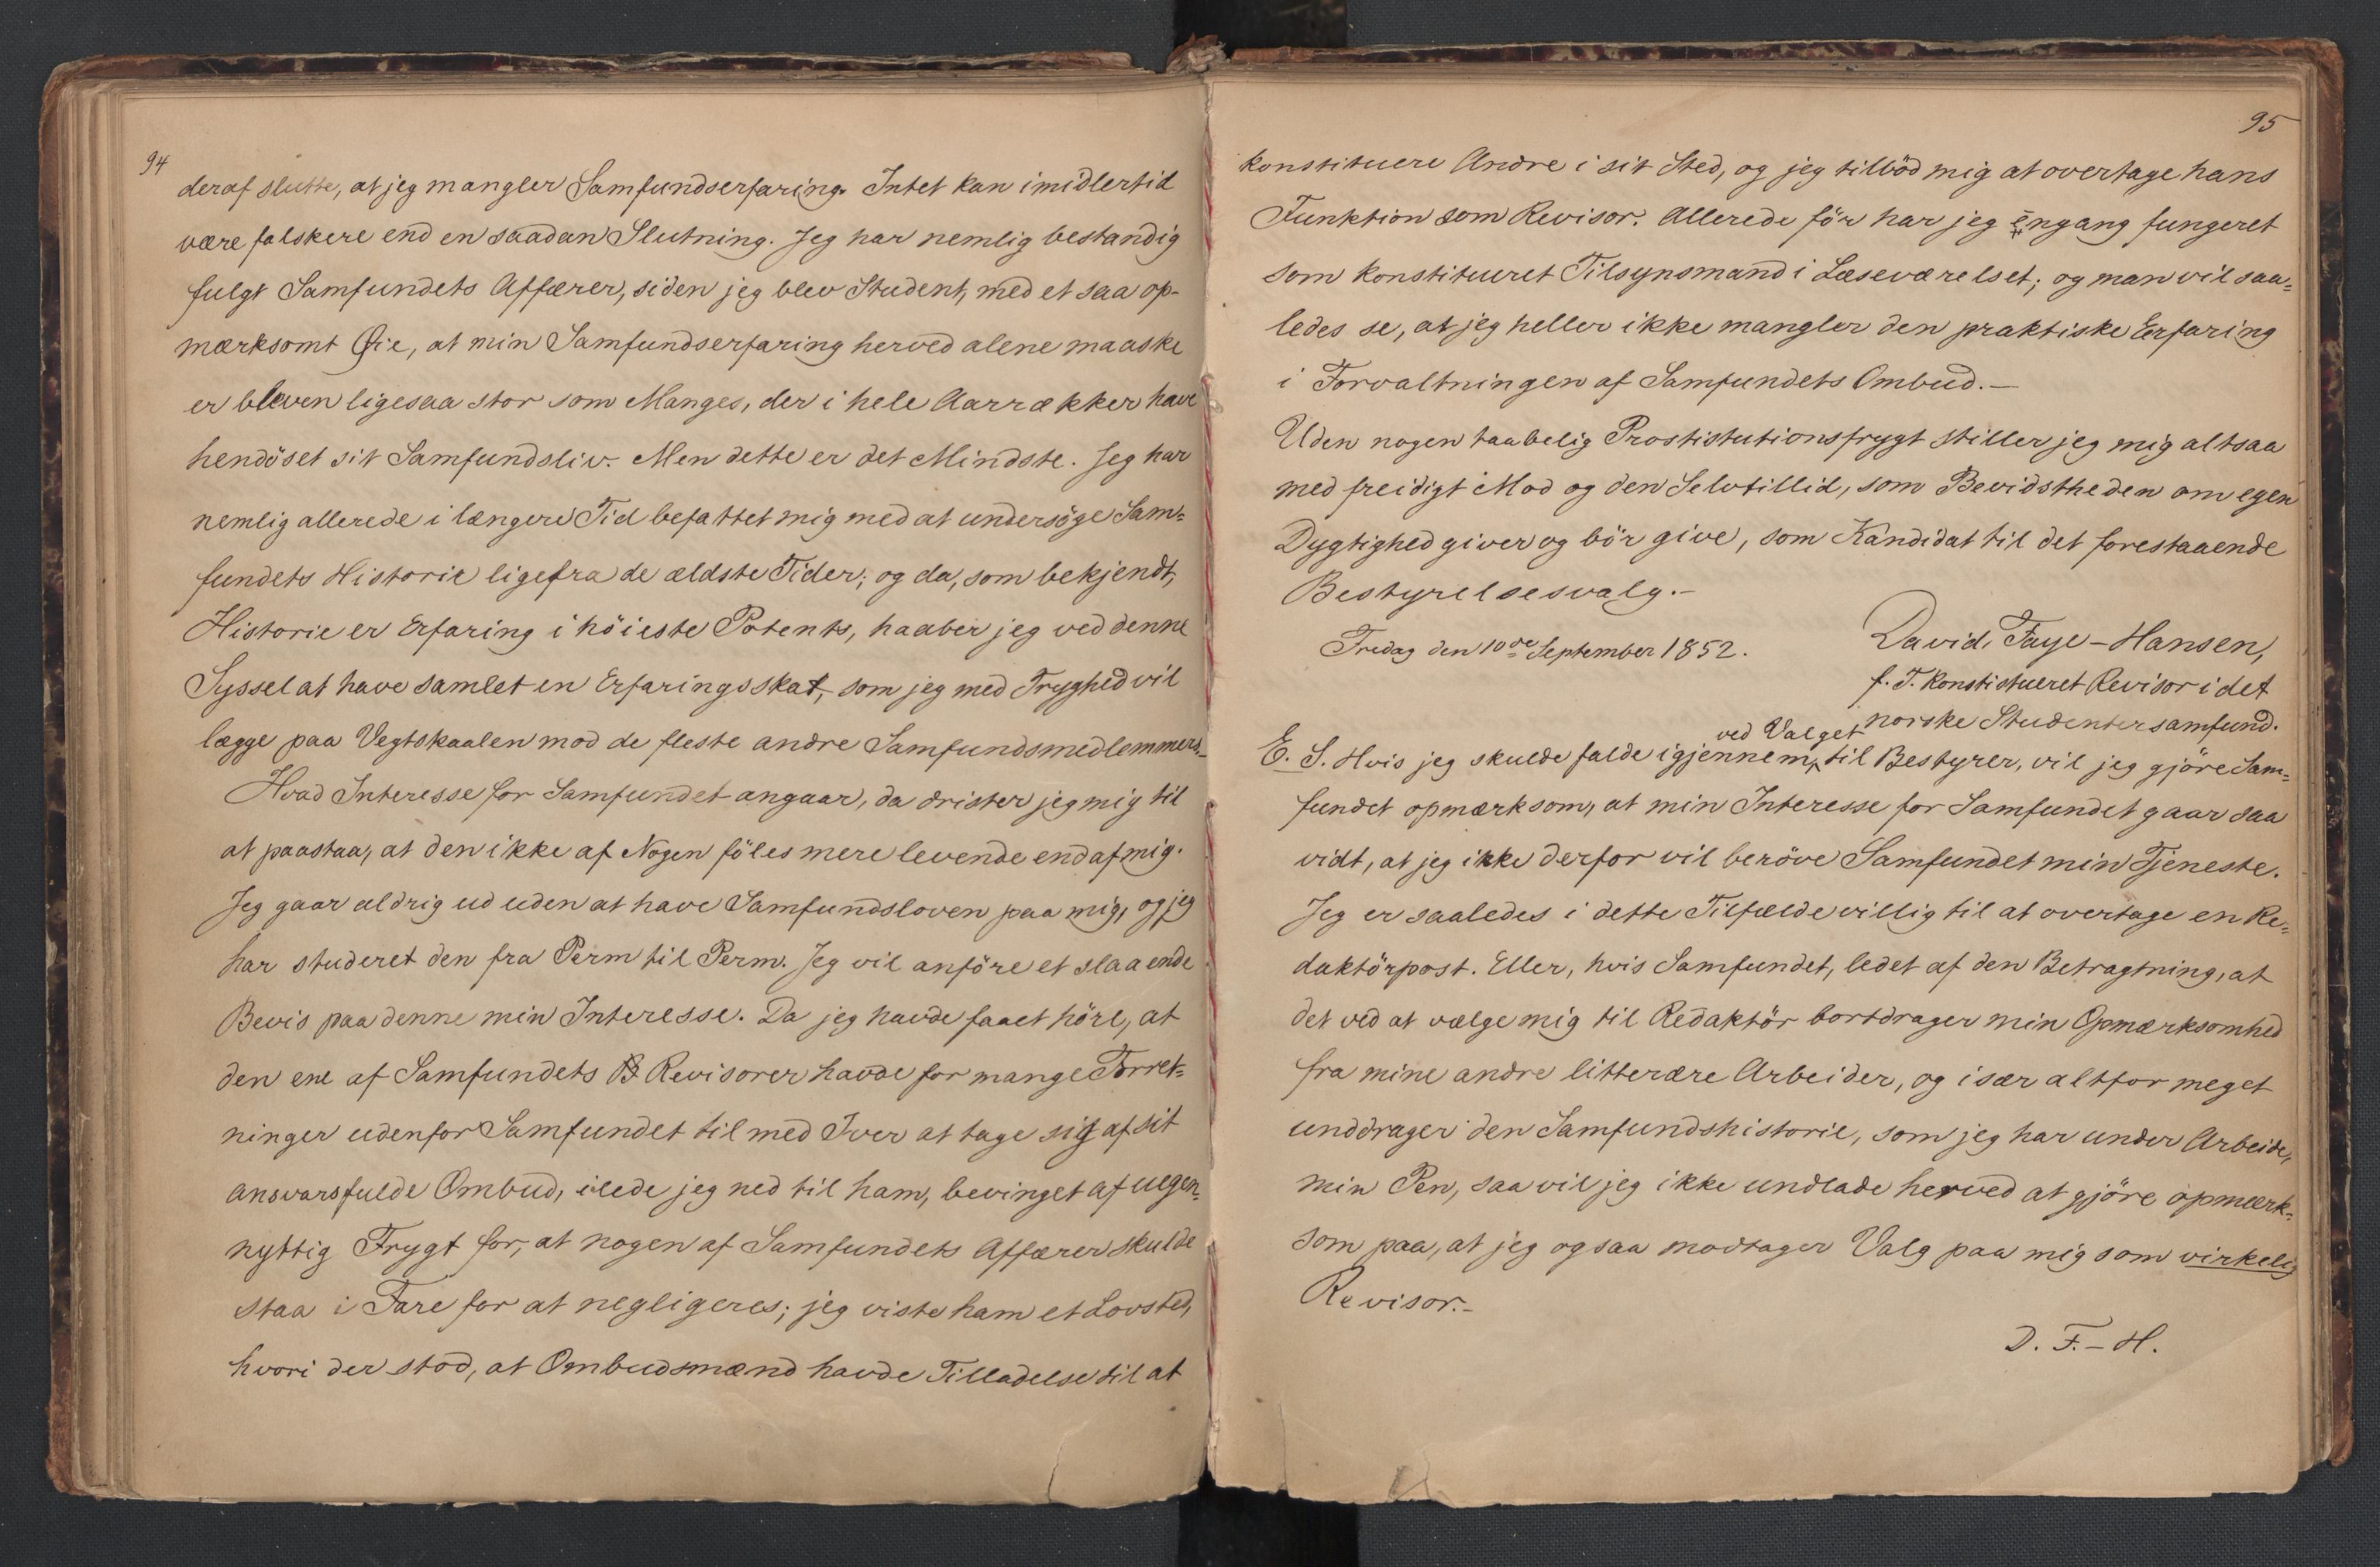 94
deraf slutte, at jeg mangler Samfundserfaring. Intet kan imidlertid
være falskere end en saadan Slutning. Jeg har nemlig bestandig
fulgt Samfundets Affærer, siden jeg blev Student, med et saa op-
mærksomt Øie, at min Samfundserfaring herved alene maaske
er bleven ligesaa stor som Manges, der i hele Aarrækker have
hendöset sit Samfundsliv. Men dette er det Mindste. Jeg har
nemlig allerede i længere Tid befattet mig med at undersöge Sam=
fundets Historie ligefra de ældste Tider; og da, som bekjendt,
Historie er Erfaring i höieste Potents, haaber jeg ved denne
Syssel at have samlet en Erfaringsskat, som jeg med Tryghed vil
lægge paa Vegtskaalen mod de fleste andre Samfundsmedlemmers.
Hvad Interesse for Samfundet angaar, da drister jeg mig til
at paastaa, at den ikke af Nogen föles mere levende end af mig.
Jeg gaar aldrig ud uden at have Samfundsloven paa mig, og jeg
har studeret den fra Perm til Perm. Jeg vil anföre et slaaende
Bevis paa denne min Interesse. Da jeg havde faaet höre, at
den ene af Samfundets Revisorer havde for mange Forret=
ninger udenfor Samfundet til med Iver at tage sig af sit
ansvarsfulde Ombud, ilede jeg ned til ham, bevinget af uegen=
nyttig Frygt for, at nogen af Samfundets Affærer skulde
staa i Fare for at negligeres; jeg viste ham et Lovsted,
hvori der stod, at Ombudsmænd havde Tilladelse til at
95
konstituere Andre i sit Sted, og jeg tilböd mig at overtage hans
Funktion som Revisor. Allerede för har jeg engang fungeret
som konstitueret Tilsynsmand i Læseværelset; og man vil saa=
ledes se, at jeg heller ikke mangler den praktiske Erfaring
i Forvaltningen af Samfundets Ombud.—
Uden nogen taabelig Prostistutionsfrygt stiller jeg mig altsaa
med freidigt Mod og den Selvtillid, som Bevidstheden om egen
Dygtighed giver og bör give, som Kandidat til det forestaaende
Bestyrelsesvalg.—
Fredag den 10de September 1852.
David Faye-Hansen,
f. T. konstistueret Revisor i det
norske Studentersamfund.
ved Valget
E. S. Hvis jeg skulde falde igjennem, til Bestyrer, vil jeg gjöre Sam=
fundet opmærksom, at min Interesse for Samfundet gaar saa
vidt, at jeg ikke derfor vil beröve Samfundet min Tjeneste.
Jeg er saaledes i dette Tilfælde villig til at overtage en Re=
daktörpost. Eller, hvis Samfundet, ledet af den Betragtning, at
det ved at vælge mig til Redaktör bortdrager min Opmærksomhed
fra mine andre litterære Arbeider, og især altfor meget
unddrager den Samfundshistorie, som jeg har under Arbeide,
min Pen, saa vil jeg ikke undlade herved at gjöre opmærk=
som paa, at jeg ogsaa modtager Valg paa mig som virkelig
Revisor.—
D. F.-H.